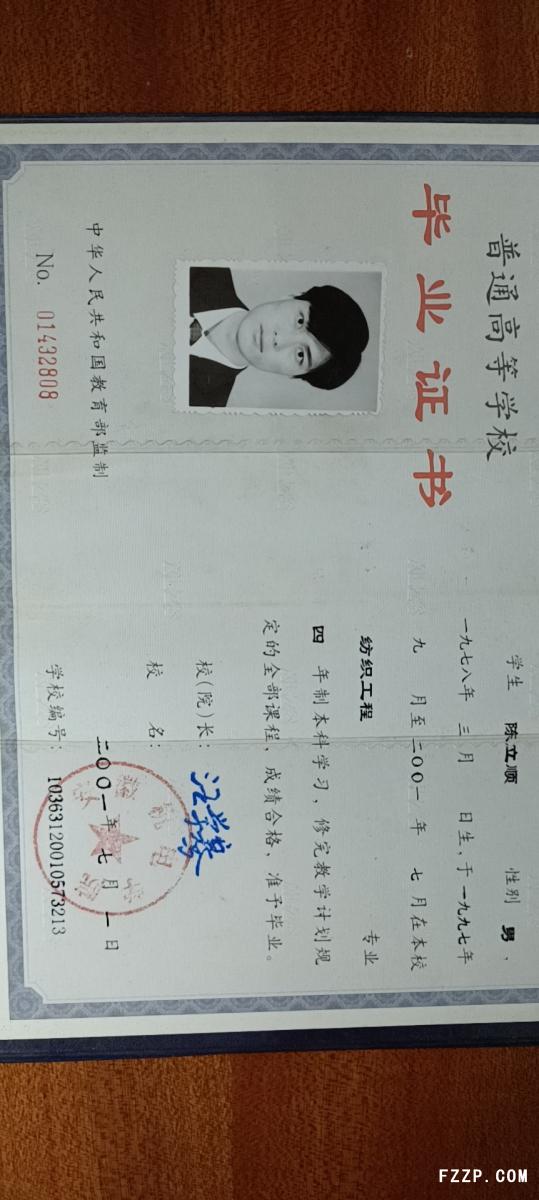 普通高等学校
毕业证书
中华人民共和国教育部监制
No. 01432808
学生 陈立顺 性别 男，
一九七八年 三 月 日生，于一九九七年
九 月至二〇〇一 年 七 月在本校
纺织工程 专业
四 年制本科学习，修完教学计划规
定的全部课程，成绩合格，准予毕业。
校(院)长：
校 名：
二〇〇一 年 七 月 一 日
学校编号：10363120010573213
FZZP.COM